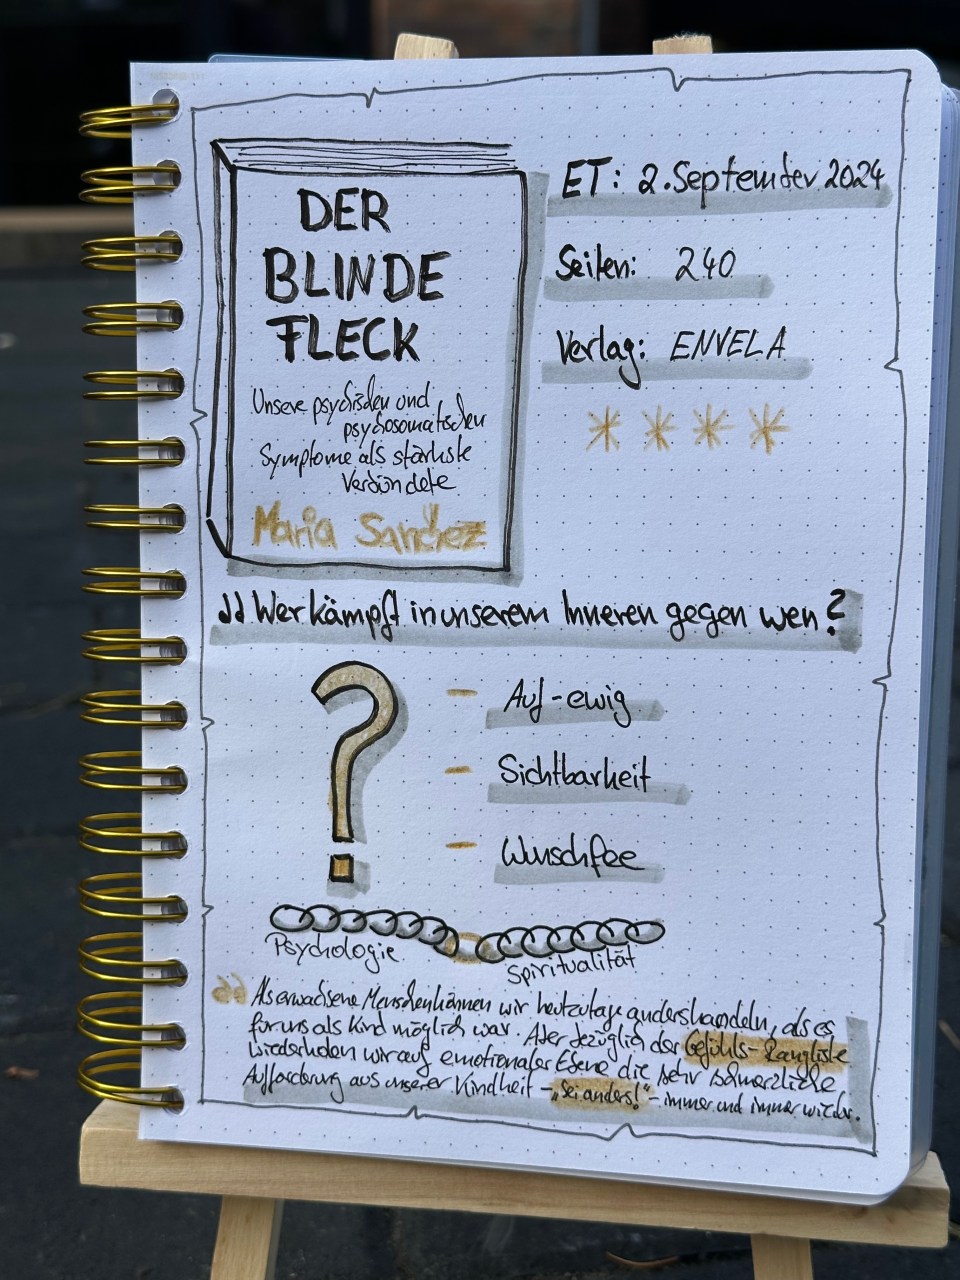 DER
BLINDE
FLECK
Unsere psychischen und
psychosomatischen
Symptome als stärkste
Verbündete
Maria Sanchez
ET: 2. September 2024
Seiten: 240
Verlag: ENVELA
Wer kämpft in unserem Inneren gegen wen?
- Auf-ewig
- Sichtbarkeit
- Wunschfee
Psychologie
Spiritualität
Als erwachsene Menschen können wir heutzutage anders handeln, als es
für uns als Kind möglich war. Aber bezüglich der Gefühls-Rangliste
wiederholen wir auf emotionaler Ebene die sehr schmerzliche
Aufforderung aus unserer Kindheit - „Sei anders!" - immer und immer wieder.